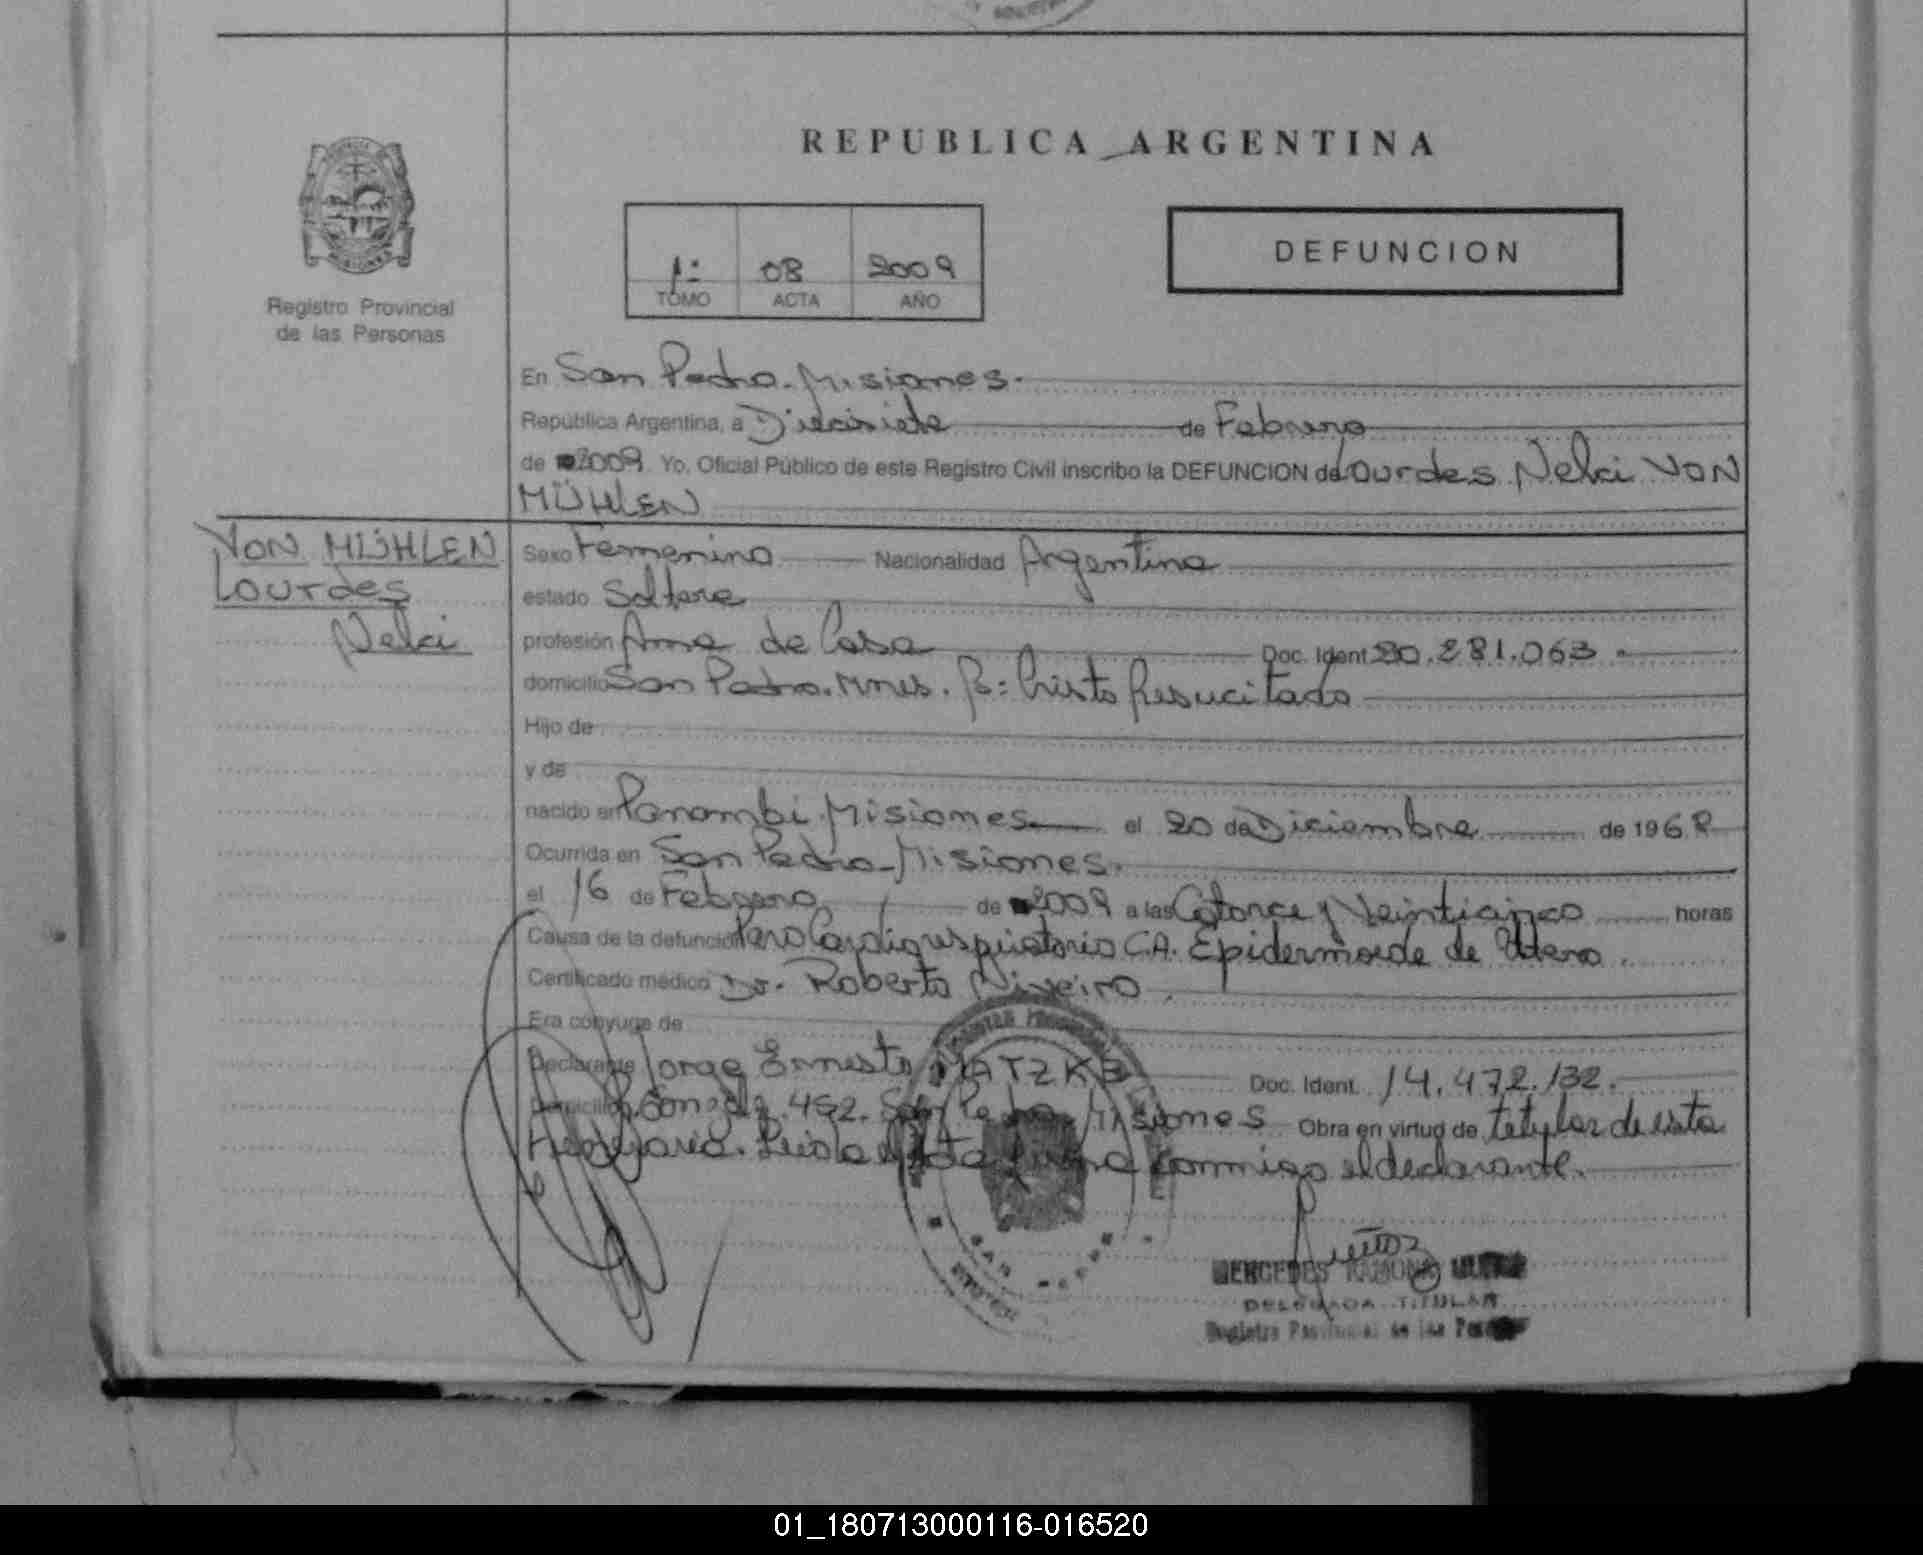 REPUBLICA ARGENTINA
1º 08 2009
TOMO ACTA AÑO
DEFUNCION
Registro Provincial
de las Personas
En San Pedro. Misiones.
República Argentina, a Diecisiete de Febrero
de 2009 Yo, Oficial Público de este Registro Civil inscribo la DEFUNCION de Lourdes Nelci VON
MÜHLEN
VON MÜHLEN
Lourdes
Nelci
Sexo Femenino Nacionalidad Argentina
estado Soltera
profesión Ama de Casa Doc. Ident 20.281.063.
domicilio San Pedro. Mnes. Bº: Cristo Resucitado
Hijo de
y de
nacido en Panambi. Misiones el 20 de Diciembre de 1968
Ocurrida en San Pedro-Misiones.
el 16 de Febrero de 2009 a las Catorce y Veinticinco horas
Causa de la defunción Paro Cardiorespiratorio C.A. Epidermoide de Utero.
Certificado médico Dr. Roberto Niveiro.
Era cónyuge de
Declarante Jorge Ernesto MATZKE Doc. Ident. 14.472.132.
Domicilio 452. San Pedro. Misiones Obra en virtud de titular de esta
Funeraria. Leida el Acta firma conmigo el declarante.
SAN PEDRO
MISIONES
MERCEDES RAMONA
DELEGADA TITULAR
Registro Provincial de las
01_180713000116-016520